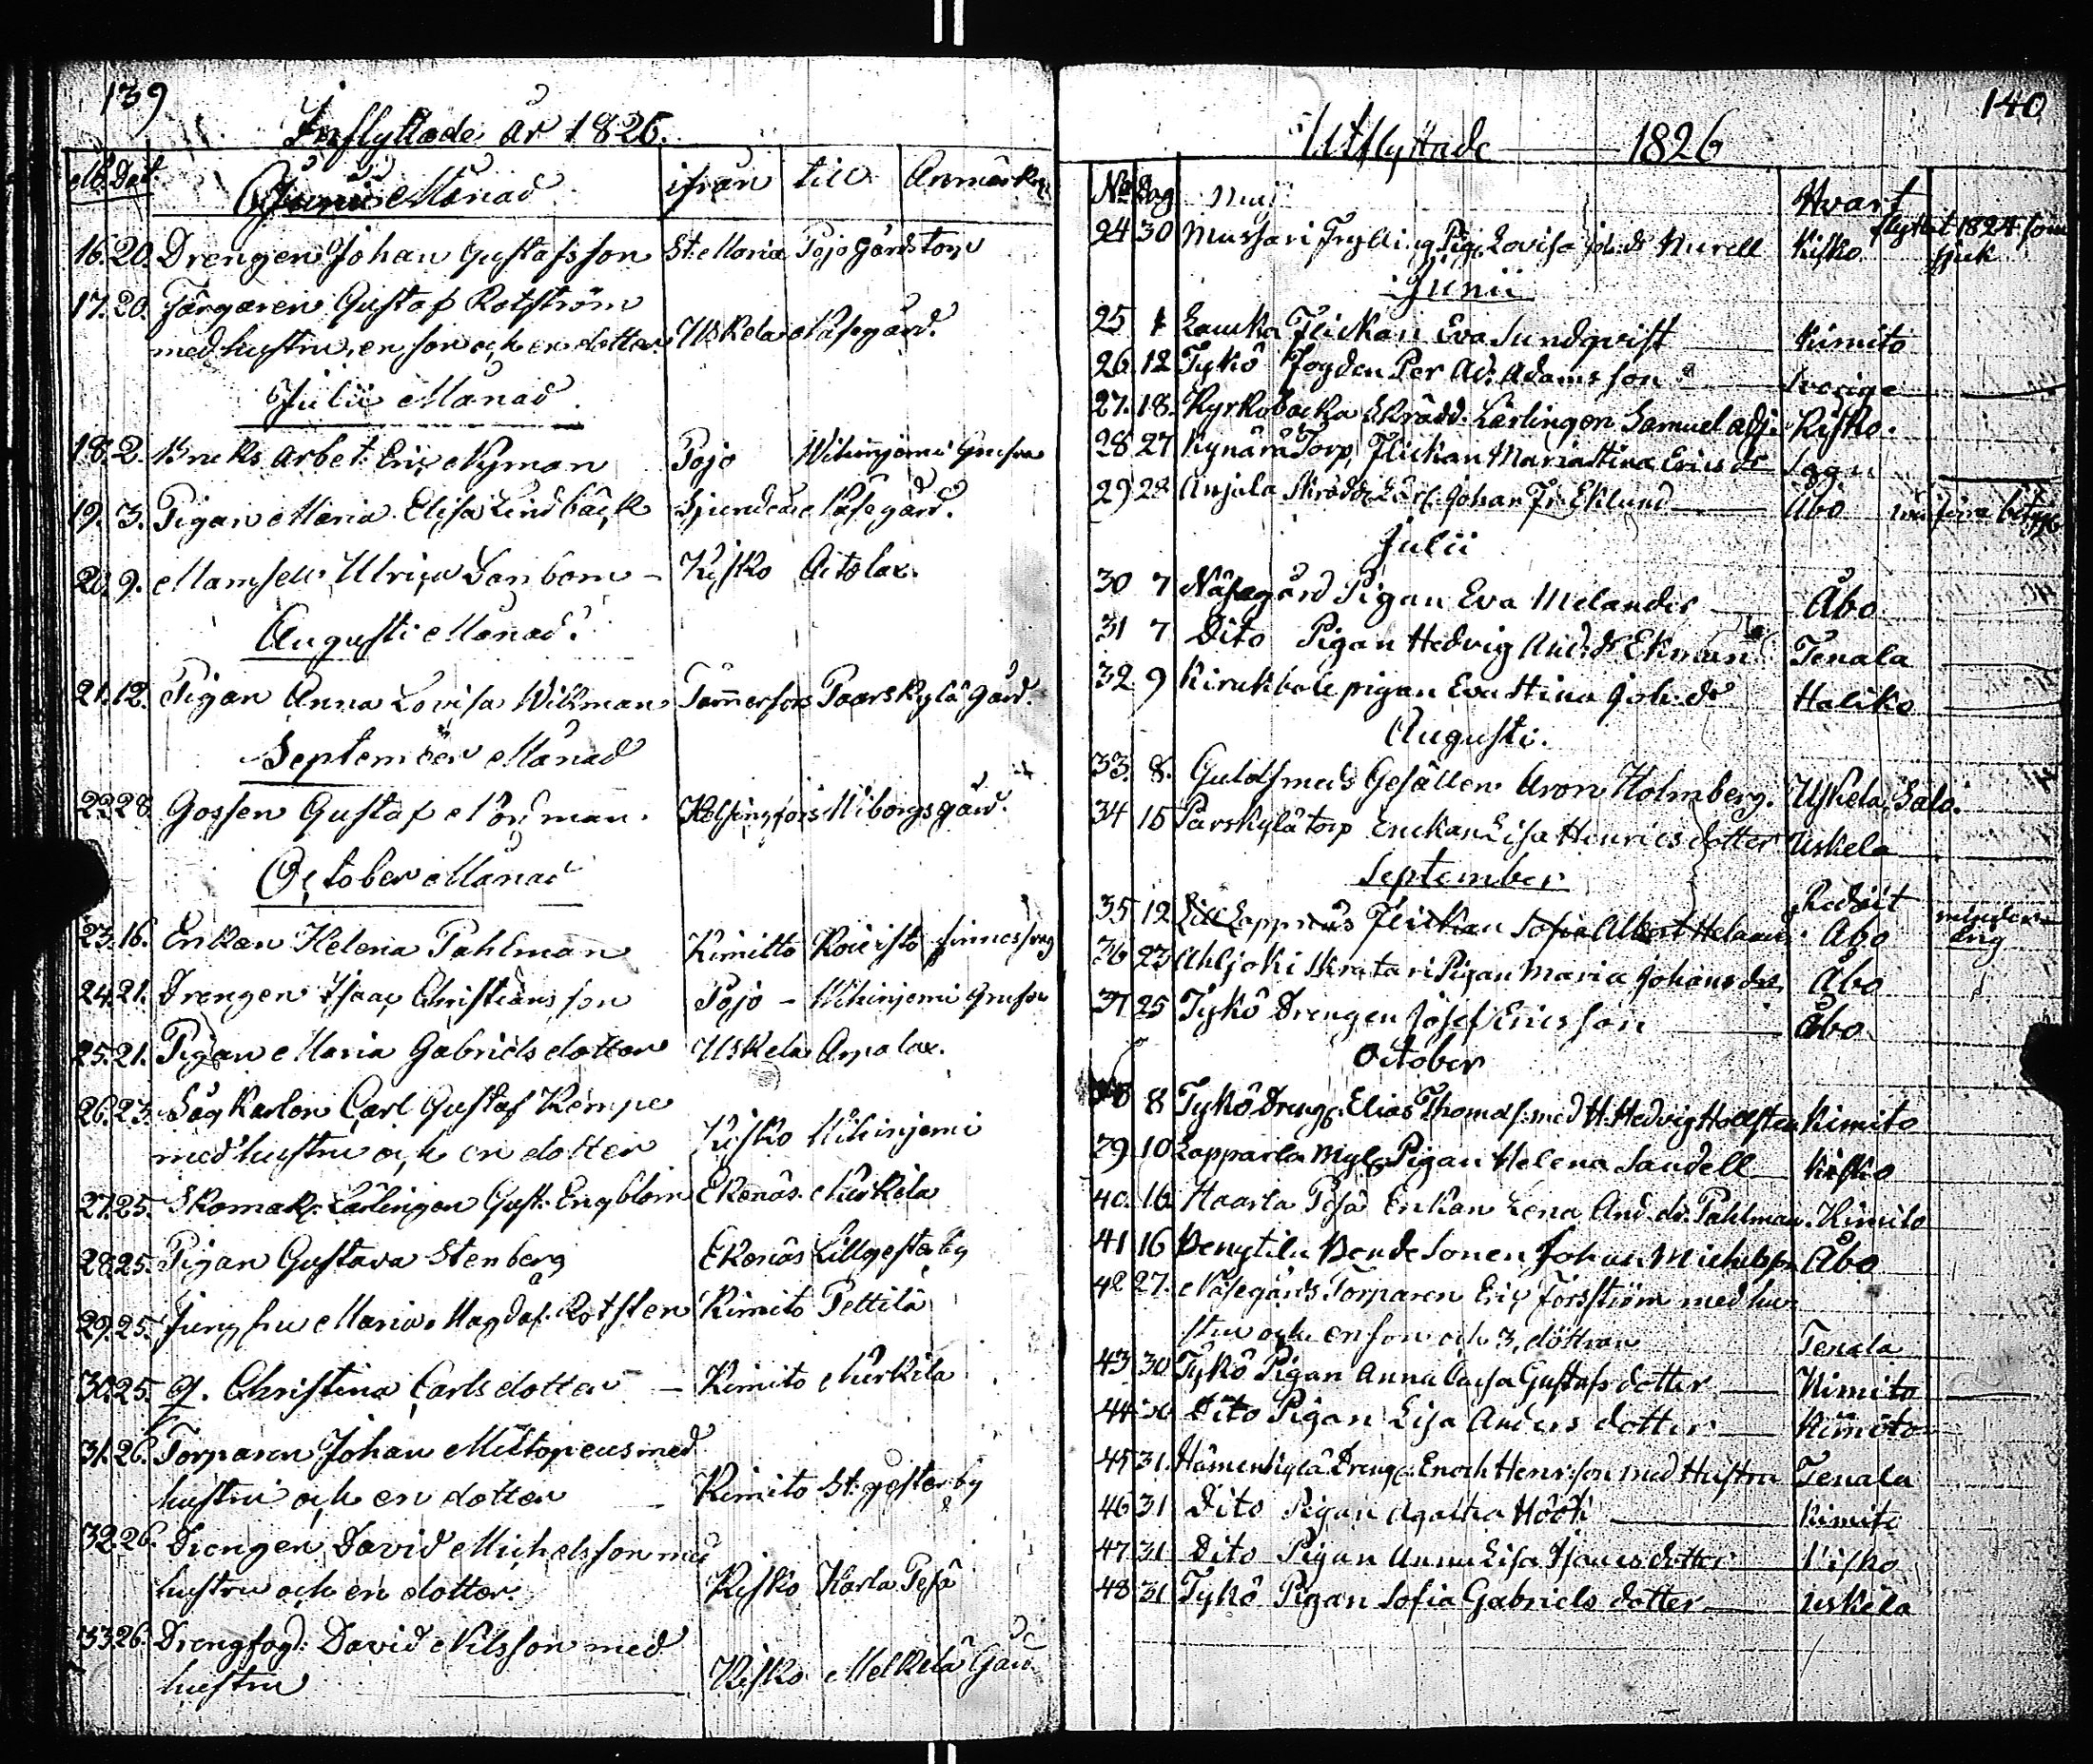 139
Inflyttade år 1826.
No. Dat. Junii Månad ifrån till Anmärkn.
16. 20. Drengen Johan Gustafsson St. Maria Pojo Gårds torp
17. 20. Färgaren Gustaf Rotström
med hustru, en son och en dotter. Uskela Näsegård.
Julii Månad
18. 2. Bruks arbet. Eric Nyman Pojo Wihinjemi Grufva
19. 3. Pigan Maria Elisa Lindbäck Sjundeå Näsegård.
20. 9. Mamsell Ulrica Sanbom – Kisko
Augusti Månad.
21. 12. Pigan Anna Lovisa Wikman Tammerfors Paarskylä Gård.
September Månad
22. 28. Gossen Gustaf Nordman. Helsingfors Wiborgsgård.
October Månad
23. 16. Enkan Helena Pahlman Kimitto Koivisto
24. 21. Drengen Isaac Christiansson Pojo – Wihinjemi Grufva
25. 21. Pigan Maria Gabriels dotter Uskela
26. 23. Sågkarlen Carl Gustaf Kempe
med hustru och en dotter Kisko Wihinjemi
27. 25. Skomak. Lärlingen Gust. Engblom Ekenäs Kurkela
28. 25. Pigan Gustava Stenberg Ekenäs Lillgesterby
29. 25. Jungfru Maria Magdal. Rotsten Kimito Pettilä
30. 25. Q. Christina Carlsdotter – Kimito Kurkila
31. 26. Torparen Johan Mittopeus med
hustru och en dotter – Kimito St. gesterby
32. 26. Drengen David Michelsson med
hustru och en dotter. Kisko Harla Pesä
33. 26. Drengfogd. David Nilsson med
hustru Kisko Melkilä Gård.
140
Utflyttade 1826
No Dag Maji Hvart
24 30 Mussari Pig. Lovisa Joh. dr Murell Kisko flyttat 1824 som
sjuk
Junii
25 1 Flickan Eva Sundqvist Kimito
26. 12 Tykö Fogden Per Ad. Adamsson Sverige
27. 18. Kyrkobacka Skrädd. Lärlingen Samuel Adj. Kisko.
28 27 Kynärä Torp, Flickan Maria Stina Erics dr
29 28 Anjala Skrädd. Lärl. Johan Fr. Eklund Åbo
Julii
30 7 Näsegård Pigan Eva Melander Åbo
31 7 Dito Pigan Hedvig And. dr Ekman Tenala
32 9 Kirukbole pigan Eva Stina Joh. dr Haliko
Augusti.
33. 8. Guldsmeds Gesällen Aron Holmberg. Uskela, Salo.
34 15 Parskylä torp Enckan Lisa Henrics dotter Uskela
September
Rediit
35 12 Lill Lappnäs Flickan Sofia Albert. Helanen Åbo
36 23 Ahljoki Skratari Pigan Maria Johans dr Åbo
37 25 Tykö Drengen Josef Ericsson Åbo
October
38 8 Tykö Dreng. Elias Thomas s. med H. Hedvig Hollsten Kimito
39. 10 Lapparla Mylg. Pigan Helena Sandell Kisko
40. 16 Haarla Pesä Enkan Lena And. dr. Pahlman. Kimito
41 16 Pengtilu Bonde Sonen Johan Michelss. Åbo
42 27. Näsegårds Torparen Eric Forsström med hu-
stru och en son och 3. döttrar Tenala
43 30 Tykö Pigan Anna Caisa Gustafs dotter Kimito
44 30 Dito Pigan Lisa Anders dotter Kimito
45 31. Hämenkylä Dreng. Enoch Henr:son med Hustru Tenala
46 31 Dito Pigan Agatha Höök Kimito
47 31 Dito Pigan Anna Lisa Isaacs dotter Kisko
48 31 Tykö Pigan Sofia Gabriels dotter Uskela